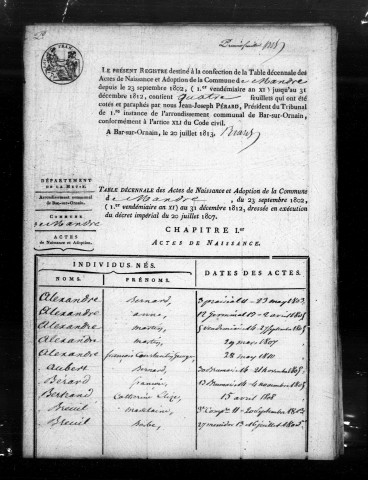 LE PRÉSENT REGISTRE destiné à la confection de la Table décennale des
Actes de Naissance et Adoption de la Commune de Mandre
depuis le 23 septembre 1802, (1.er vendémiaire an XI) jusqu'au 31
décembre 1812, contient quatre feuillets qui ont été
cotés et paraphés par nous Jean-Joseph PÉRARD, Président du Tribunal
de 1.re instance de l'arrondissement communal de Bar-sur-Ornain,
conformément à l'artice XLI du Code civil.
A Bar-sur-Ornain, le 20 juillet 1813,
DÉPARTEMENT
DE LA MEUSE.
Arrondissement communal
de Bar-sur-Ornain.
COMMUNE
de Mandre
ACTES
de Naissance et Adoption.
TABLE DÉCENNALE des Actes de Naissance et Adoption de la Commune
de Mandre, du 23 septembre 1802,
(1.er vendémiaire an XI) au 31 décembre 1812, dressée en exécution
du décret impérial du 20 juillet 1807.
CHAPITRE I.er
ACTES DE NAISSANCE.
INDIVIDUS NÉS.
DATES DES ACTES.
NOMS.
PRÉNOMS.
Alexandre Bernard, 3 prairial 11 - 23 may 1803
Alexandre anne, 12 germinal 13 - 2 avril 1805
Alexandre martin, 5 vendemiaire 14 - 27 septembre 1805
Alexandre martin, 29 may 1807
Alexandre françois Constantin George, 28 may 1810
Aubert Bernard, 30 Brumaire 14 - 21 novembre 1805
Berard 13 Brumaire 14 - 4 novembre 1805
Bertrand Catherine 15 avril 1808
Breuil Madelaine, 3e Comp.re 11 - 20 septembre 1803
Breuil Barbe, 27 messidor 13 - 16 juillet 1805